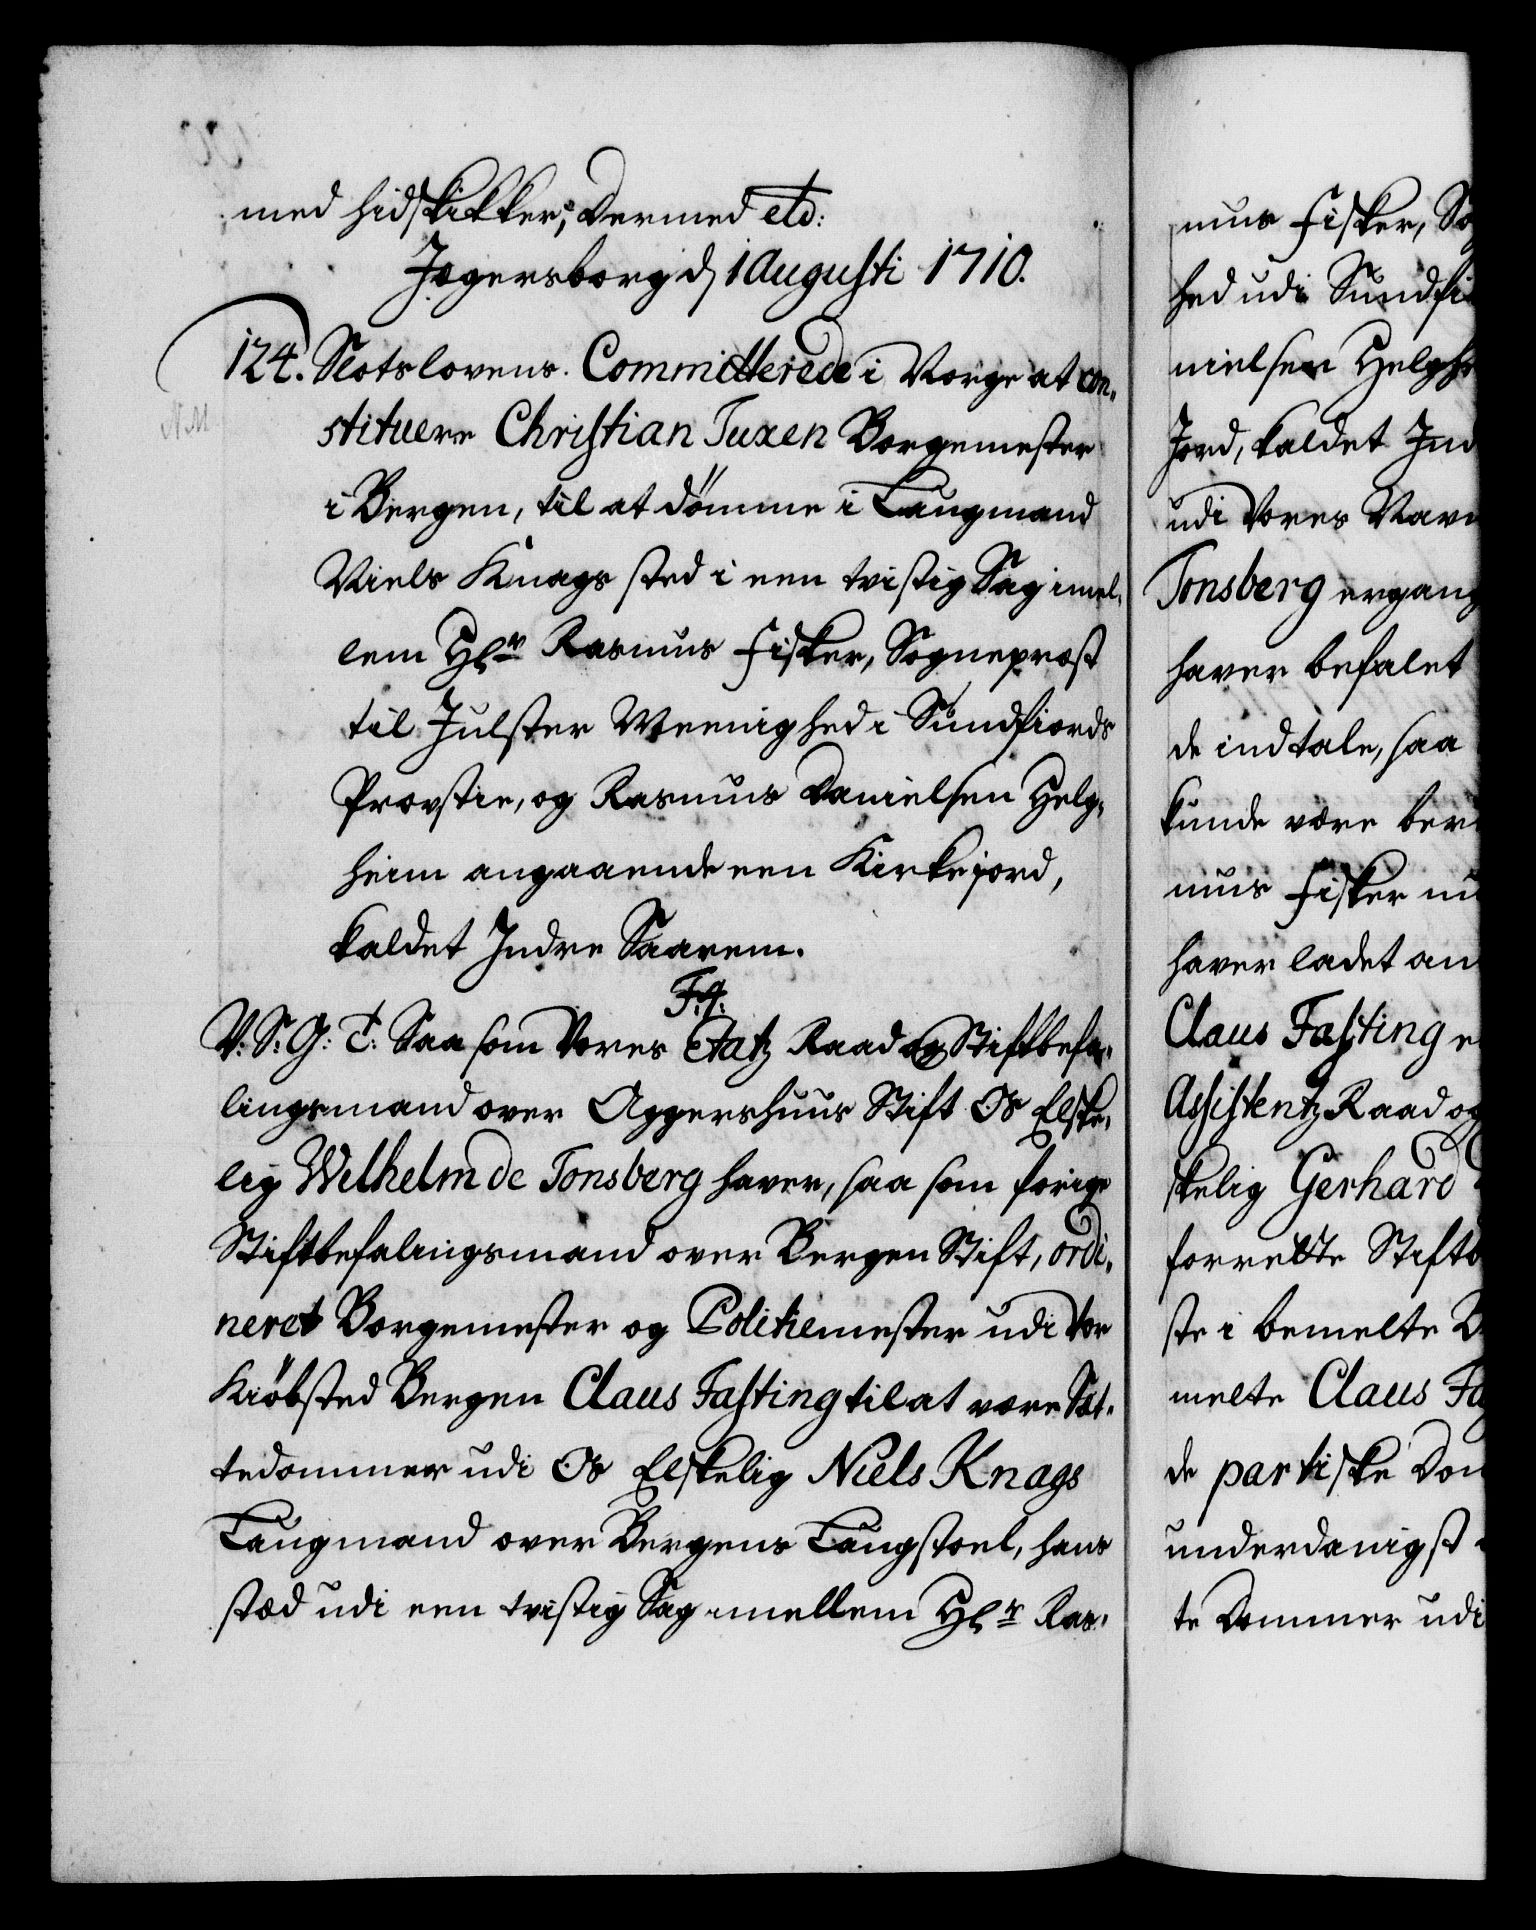 med hidskikker; Dermed etc:
Jægersborg d 1 Augusti 1710.
124. Slotslovens Committerede i Norge at con-
NM
stituere Christian Tuxen Borgemester
i Bergen, til at dömme i Laugmand
Niels Knags sted i een tvistig Sag imel-
lem Hr Rasmus Fisker, Sognepræst
til Julster Meenighed i Sundfiords
Provstie, og Rasmus Danielsen Helg-
heim angaaende een Kirkejord,
kaldet Indre Saarem.
F. 4.
V: S: G: T: Saa som Vores Etatz Raad og Stiftbefa-
lingsmand over Aggershuus Stift Os Elske-
lig Wilhelm de Tonsberg haver, saa som forige
Stiftbefalingsmand over Bergen Stift, ordi-
neret Borgemester og Politiemester udi Vor
Kiöbsted Bergen Claus Fasting til at være Sæt-
tedommer udi Os Elskelig Niels Knags
Laugmand over Bergens Laugstoel, hans
stæd udi een tvistig Sag imellem Hr Ras-
mus Fisker, So
hed udi Sundfi
nielsen Helghe
Jord, kaldet Ind
udi Vores Navn
Tonsberg ergang
haver befalet
de indtale, saa
kunde være ber
mus Fisker nu
haver ladet an
Claus Fasting e
Assistentz Raad og
skelig Gerhard
forrette Stiftb
ste i bemelte B
melte Claus Fa
de partiske Dom
underdanigst
te Dommer udi